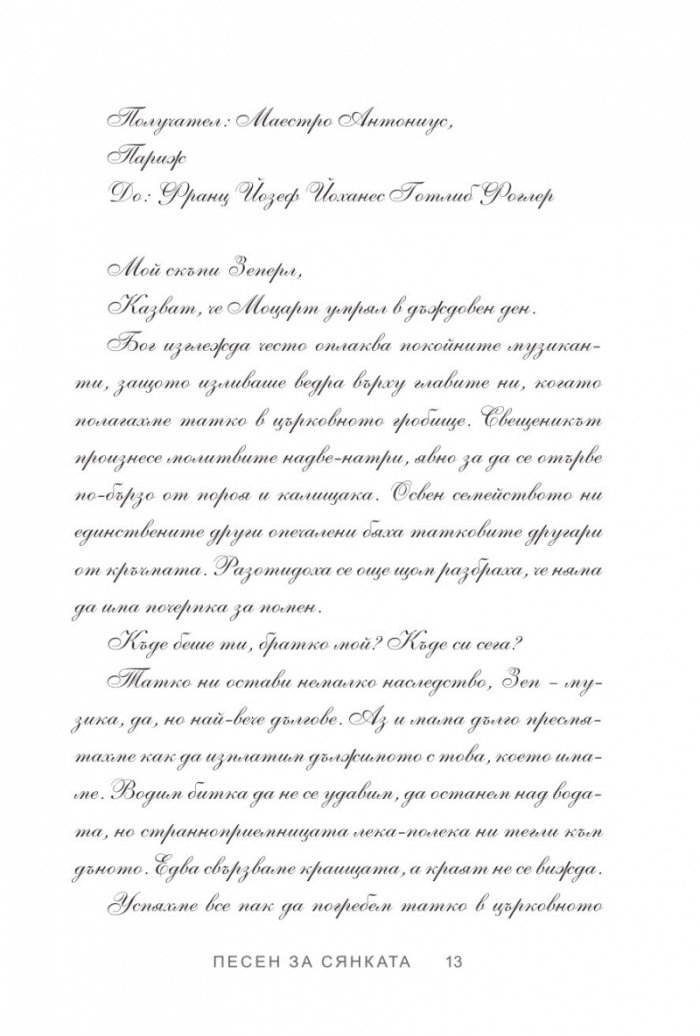 Получател: Маестро Антониус,
Париж
До: Франц Йозеф Йоханес Готлиб Фоглер
Мой скъпи Зеперл,
Казват, че Моцарт умрял в дъждовен ден.
Бог изглежда често оплаква покойните музикан-
ти, защото изливаше ведра върху главите ни, когато
полагахме татко в църковното гробище. Свещеникът
произнесе молитвите надве-натри, явно за да се отърве
по-бързо от пороя и калищака. Освен семейството ни
единствените други опечалени бяха татковите другари
от кръчмата. Разотидоха се още щом разбраха, че няма
да има почерпка за помен.
Къде беше ти, братко мой? Къде си сега?
Татко ни остави немалко наследство, Зеп – му-
зика, да, но най-вече дългове. Аз и мама дълго пресмя-
тахме как да изплатим дължимото с това, което има-
ме. Водим битка да не се удавим, да останем над вода-
та, но странноприемницата лека-полека ни тегли към
дъното. Едва свързваме краищата, а краят не се вижда.
Успяхме все пак да погребем татко в църковното
ПЕСЕН ЗА СЯНКАТА 13